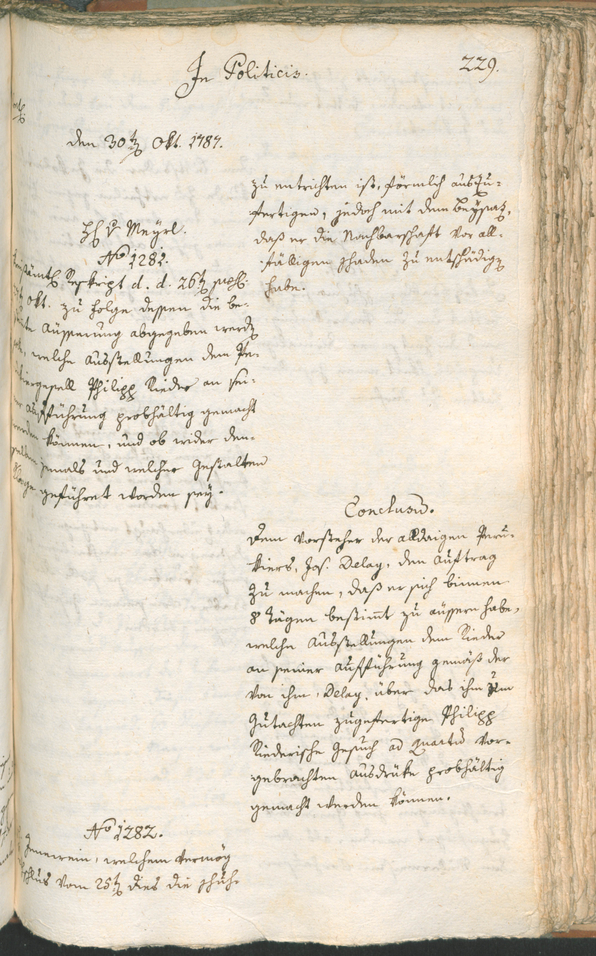 In Politicis.
229.
den 30t Okt. 1787.
zu entrichten ist, förmlich auszu-
fertigen, jedoch mit dem Beysatz,
daß er die Nachbarschaft vor all-
fälligen Schaden zu entschädigen
habe.
H: v Meyrl.
No 1281.
Reskript d. d. 26t
Okt. zu Folge dessen die be-
Äusserung abgegeben werde
welche Ausstellungen dem Pe-
Philipp Rieder an sei-
Aufführung probhältig gemacht
werden können, und ob wider den-
selben jemals und welcher Gestalten
Klage geführet worden sey.
Conclusum.
Dem Vorsteher der alldaigen Peru-
kiers, Jos. Delay, den Auftrag
zu machen, daß er sich binnen
8 Tägen bestimt zu äussern habe,
welche Ausstellungen dem Rieder
an seiner Aufführung gemäß der
von ihm, Delay, über das ihm zum
Gutachten zugefertigte Philipp
Riederische Gesuch ad Quartum vor-
gebrachten Ausdrüke probhältig
gemacht werden können.
No 1282.
welchem vermög
vom 25t dies die